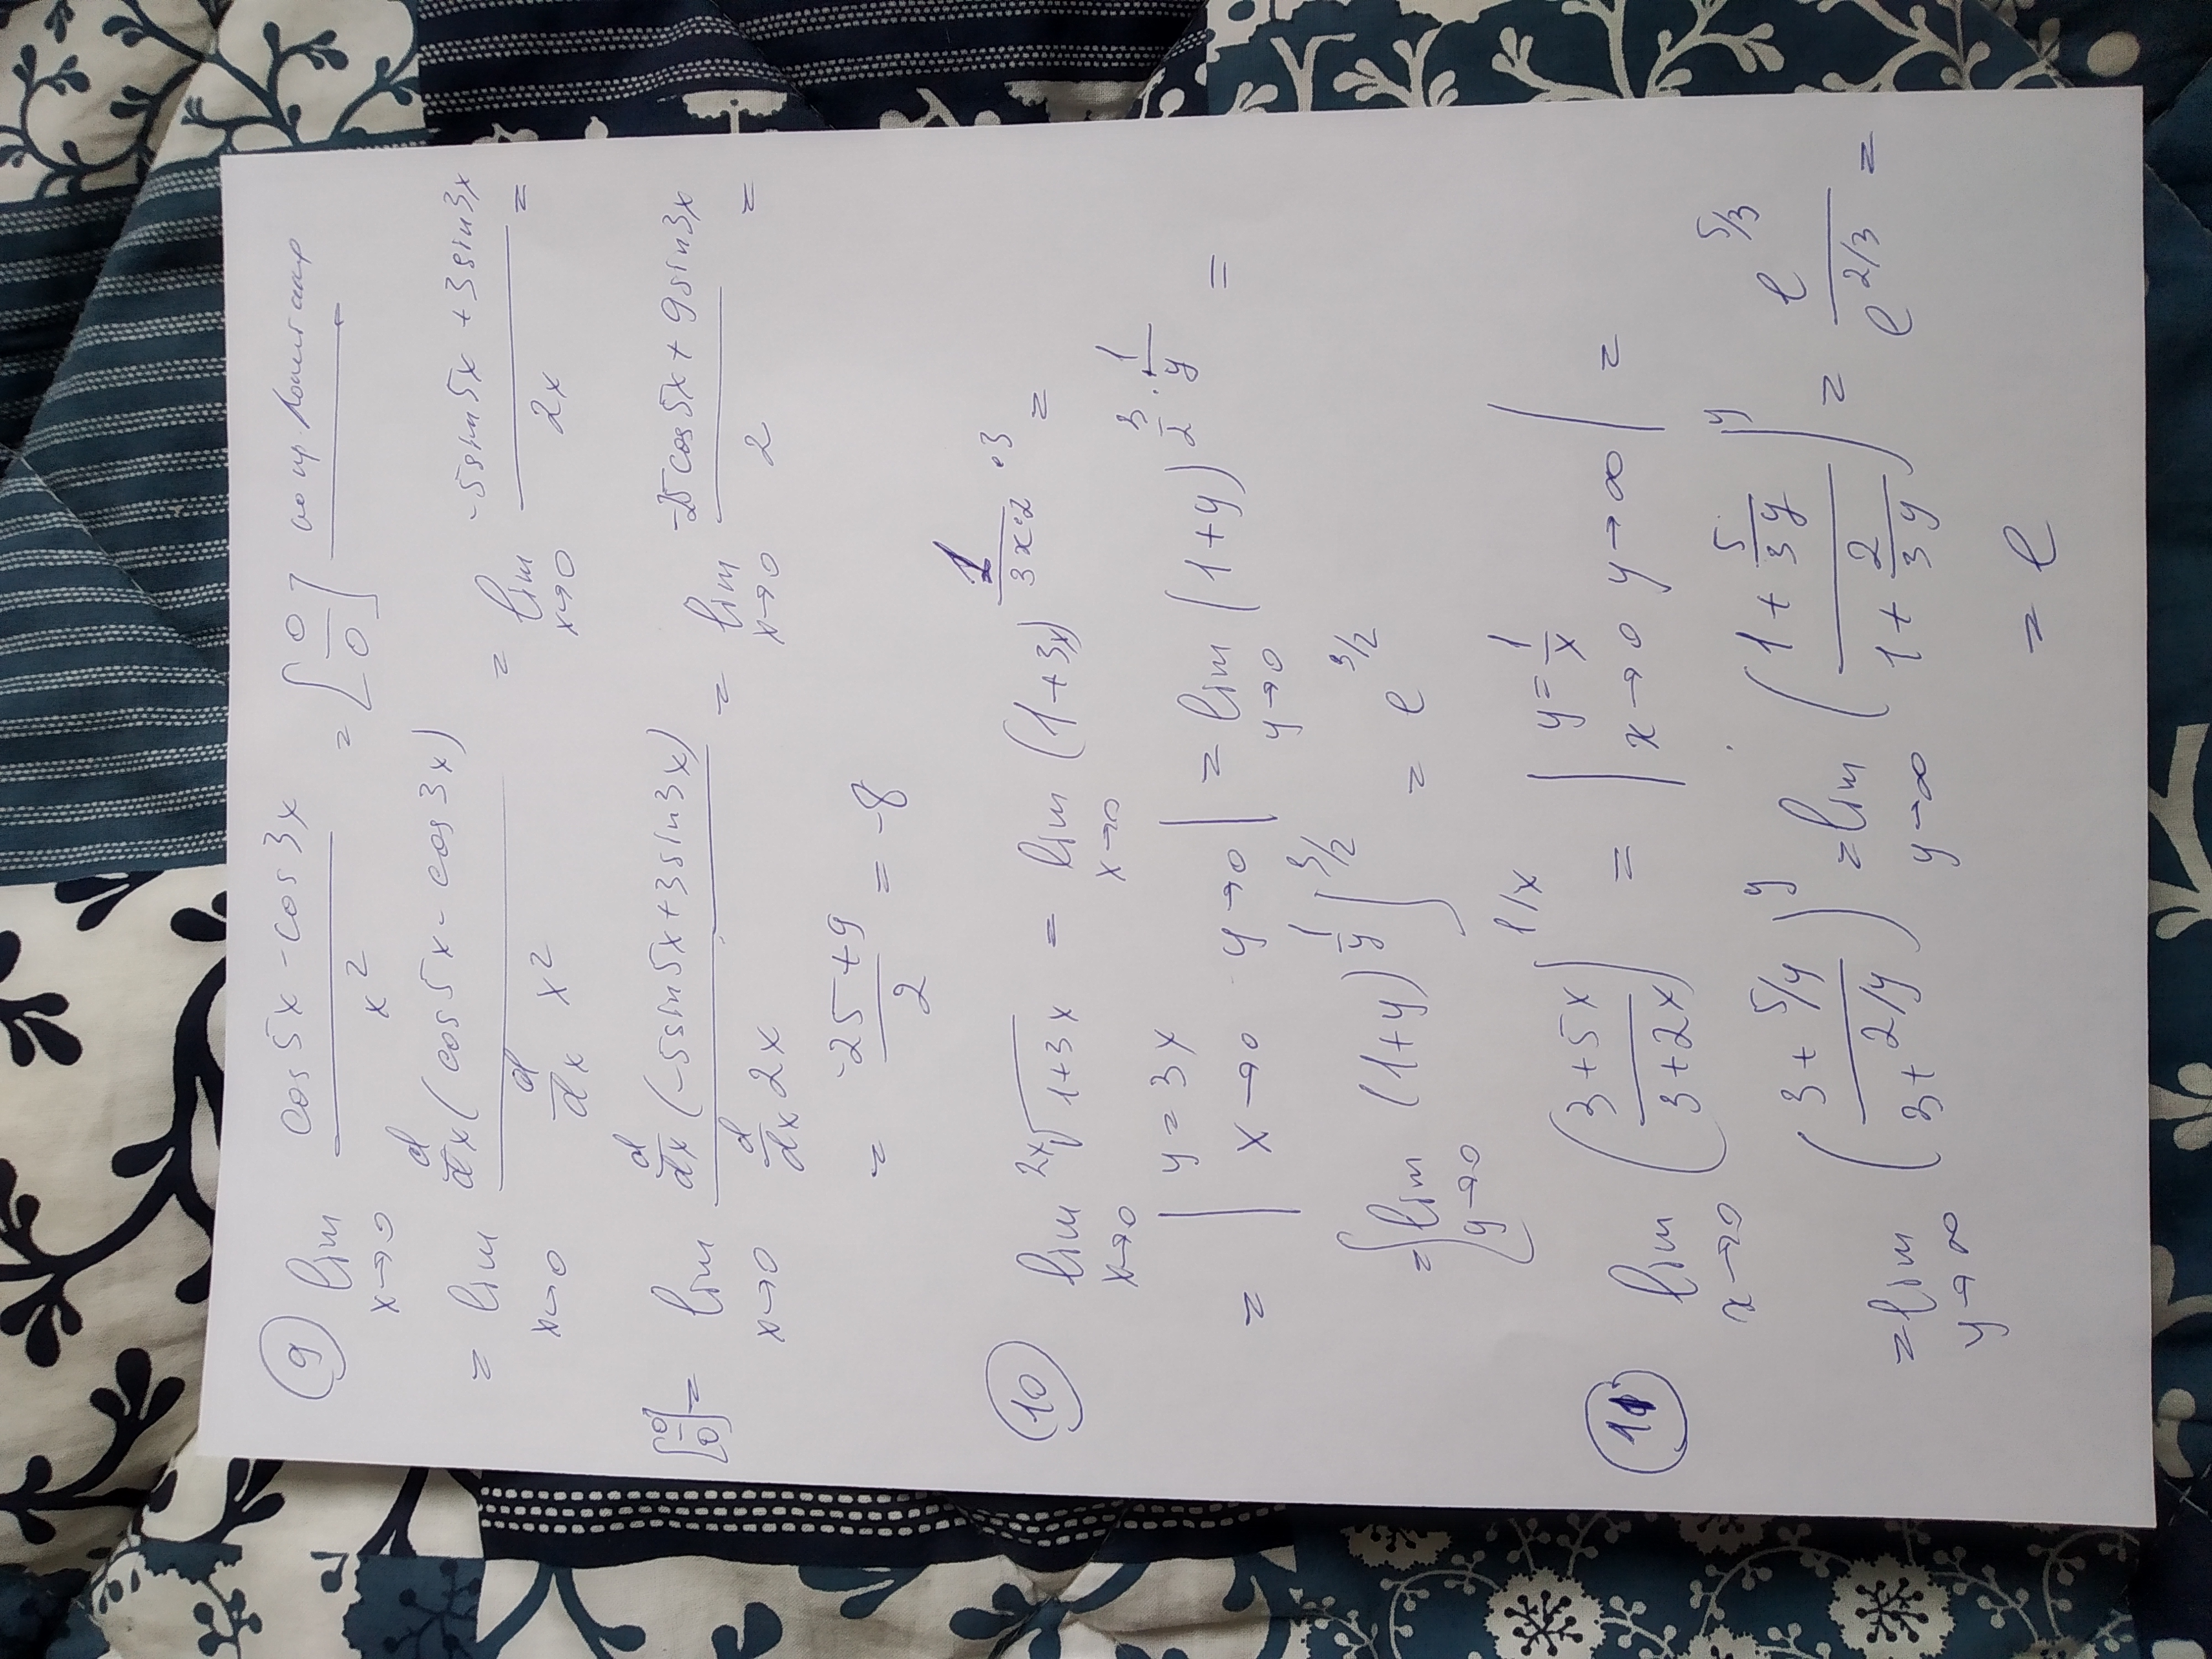 ⑨ lim x→0 (cos 5x - cos 3x)/x² = [0/0] по пр Лопиталя
= lim x→0 (d/dx (cos 5x - cos 3x))/(d/dx x²) = lim x→0 (-5sin 5x + 3 sin 3x)/(2x) =
[0/0] = lim x→0 (d/dx (-5sin 5x + 3 sin 3x))/(d/dx 2x) = lim x→0 (-25 cos 5x + 9 sin 3x)/2 =
= (-25 + 9)/2 = -8
⑩ lim x→0 ^{2x}√(1+3x) = lim x→0 (1+3x)^{1/(3x·2) ·3} =
= | y = 3x x→0 y→0 | = lim y→0 (1+y)^{3/2 · 1/y} =
= [lim y→0 (1+y)^{1/y}]^{3/2} = e^{3/2}
⑪ lim x→0 ((3+5x)/(3+2x))^{1/x} = | y = 1/x x→0 y→∞ | =
= lim y→∞ ((3+5/y)/(3+2/y))^y = lim y→∞ ((1+5/(3y))/(1+2/(3y)))^y = e^{5/3}/e^{2/3} =
= e